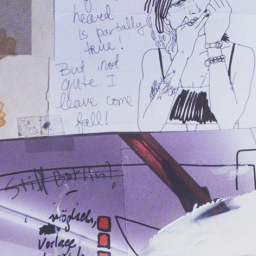 heard
is partially
true!
But not
quite. I
leave come
fall!
Still Berlin?
möglich,
Vorlage,